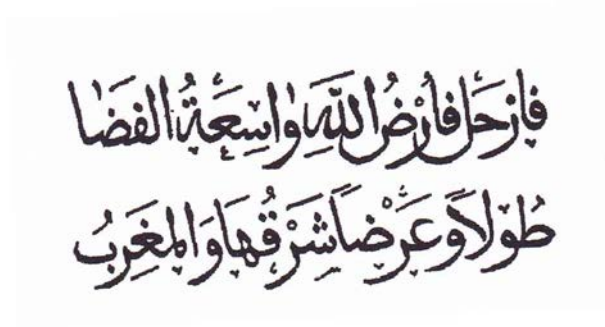 فارحل فأرض الله واسعة الفضا
طولاً وعرضاً شرقها والمغرب